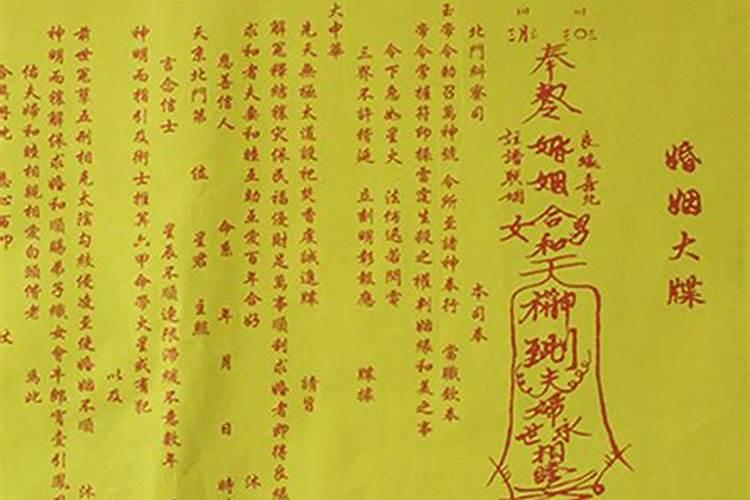 婚姻大牒
奉勅婚姻合和
良緣喜配
註譜联姻
男
女
神到
夫婦
永世相睦
北門糾察司 本司奉
玉帝令勅召萬神號 令所至諸神奉行 當職欽奉
帝令掌權符印操雷霆生殺之權判姻緣和美之事
今下急如星火 法衍過若問雷
三界不許稽延 立刻明彰報應 牒據
大中華
先天無極太道設祀焚香虔誠進牒 請皆
解冤釋結禳灾保民福優財足萬事順利求婚者即得良緣
求和者夫妻和睦互助互愛百年合好 沐
恩善信人 命系 年 月 日 時
天京北門第 位 星君 主照
言念信士 星辰不順運限滯緩不意數年
神明而指引及術士推算六甲命帶火星或有犯
以及
前世冤孽五刑相克太陰勾絞侵凌至使婚姻不順 沐
神明而禳解保求婚和順賜弟子織女會牛郎宵臺引鳳
佑夫婦和睦相親相愛白頭偕老 為此